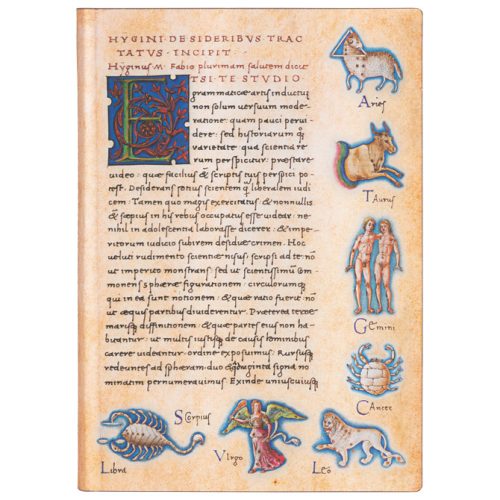 HYGINI DE SIDERIBVS TRAC
TATVS · INCIPIT ·
Hyginus · M · Fabio plurimam salutem dicit
ETSI TE STVDIO
grammaticæ artis inductu
non solum versuum mode-
ratione: quam pauci pervi-
dere: sed historiarum q
varietate qua scientia re
rum perspicitur: præstare
video: quæ facilius & scriptis tuis perspici po-
test. Desiderans potius scientem q liberalem iudi
cem: Tamen quo magis exercitatus: & nonnullis
& sæpius in his rebus occupatus esse videar: ne
nihil in adolescentia laborasse dicerer: & impe-
ritorum iudicio subirem desidiæ crimen. Hoc
velut rudimento scientiæ nisus: scripsi ad te: nō
ut imperito monstrans: sed ut scientissimū com
monens: sphæræ figurationem: circulorumq
qui in ea sunt notionem: & quæ ratio fuerit: nō
ut æquis partibus dividerentur. Præterea terræ
marisq diffinitionem: & quæ partes eius non ha-
bitantur: ut multis iustisq de causis hominibus
carere videantur: ordine exposuimus. Rursusq
redeuntes ad sphæram: duo & quadraginta signa no
minatim pernumeravimus. Exinde uniuscuiusq
Aries
Taurus
Gemini
Cancer
Leo
Virgo
Scorpius
Libra